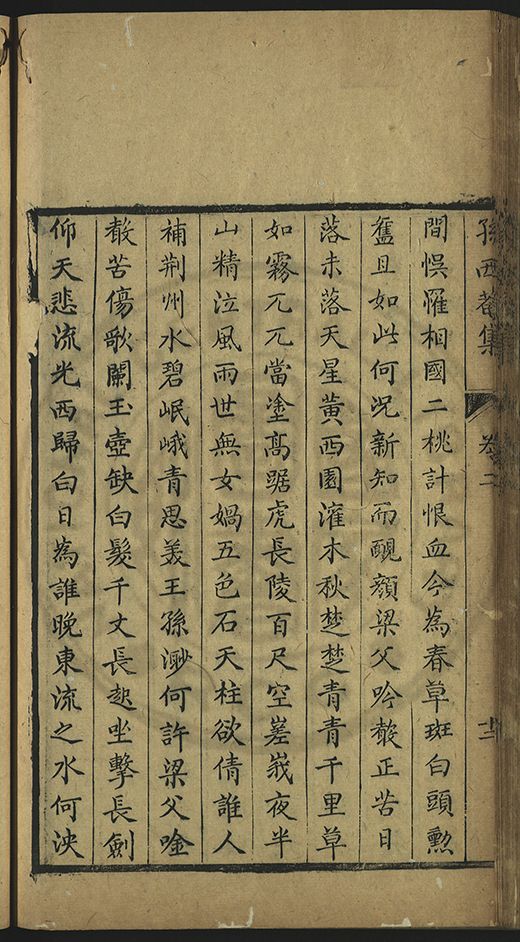 孫西菴集 卷二 十二
間悞罹相國二桃計恨血今為春草斑白頭勲
舊且如此何况新知而靦顔梁父吟聲正苦日
落未落天星黄西園濰木秋楚楚青青千里草
如霧兀兀當塗髙踞虎長陵百尺空嵳峩夜半
山精泣風雨世無女媧五色石天柱欲倩誰人
補荆州水碧岷峨青思美王孫渺何許梁父唫
聲苦傷歌闌玉壺缺白髮千丈長起坐擊長劍
仰天悲流光西歸白日為誰晚東流之水何泱